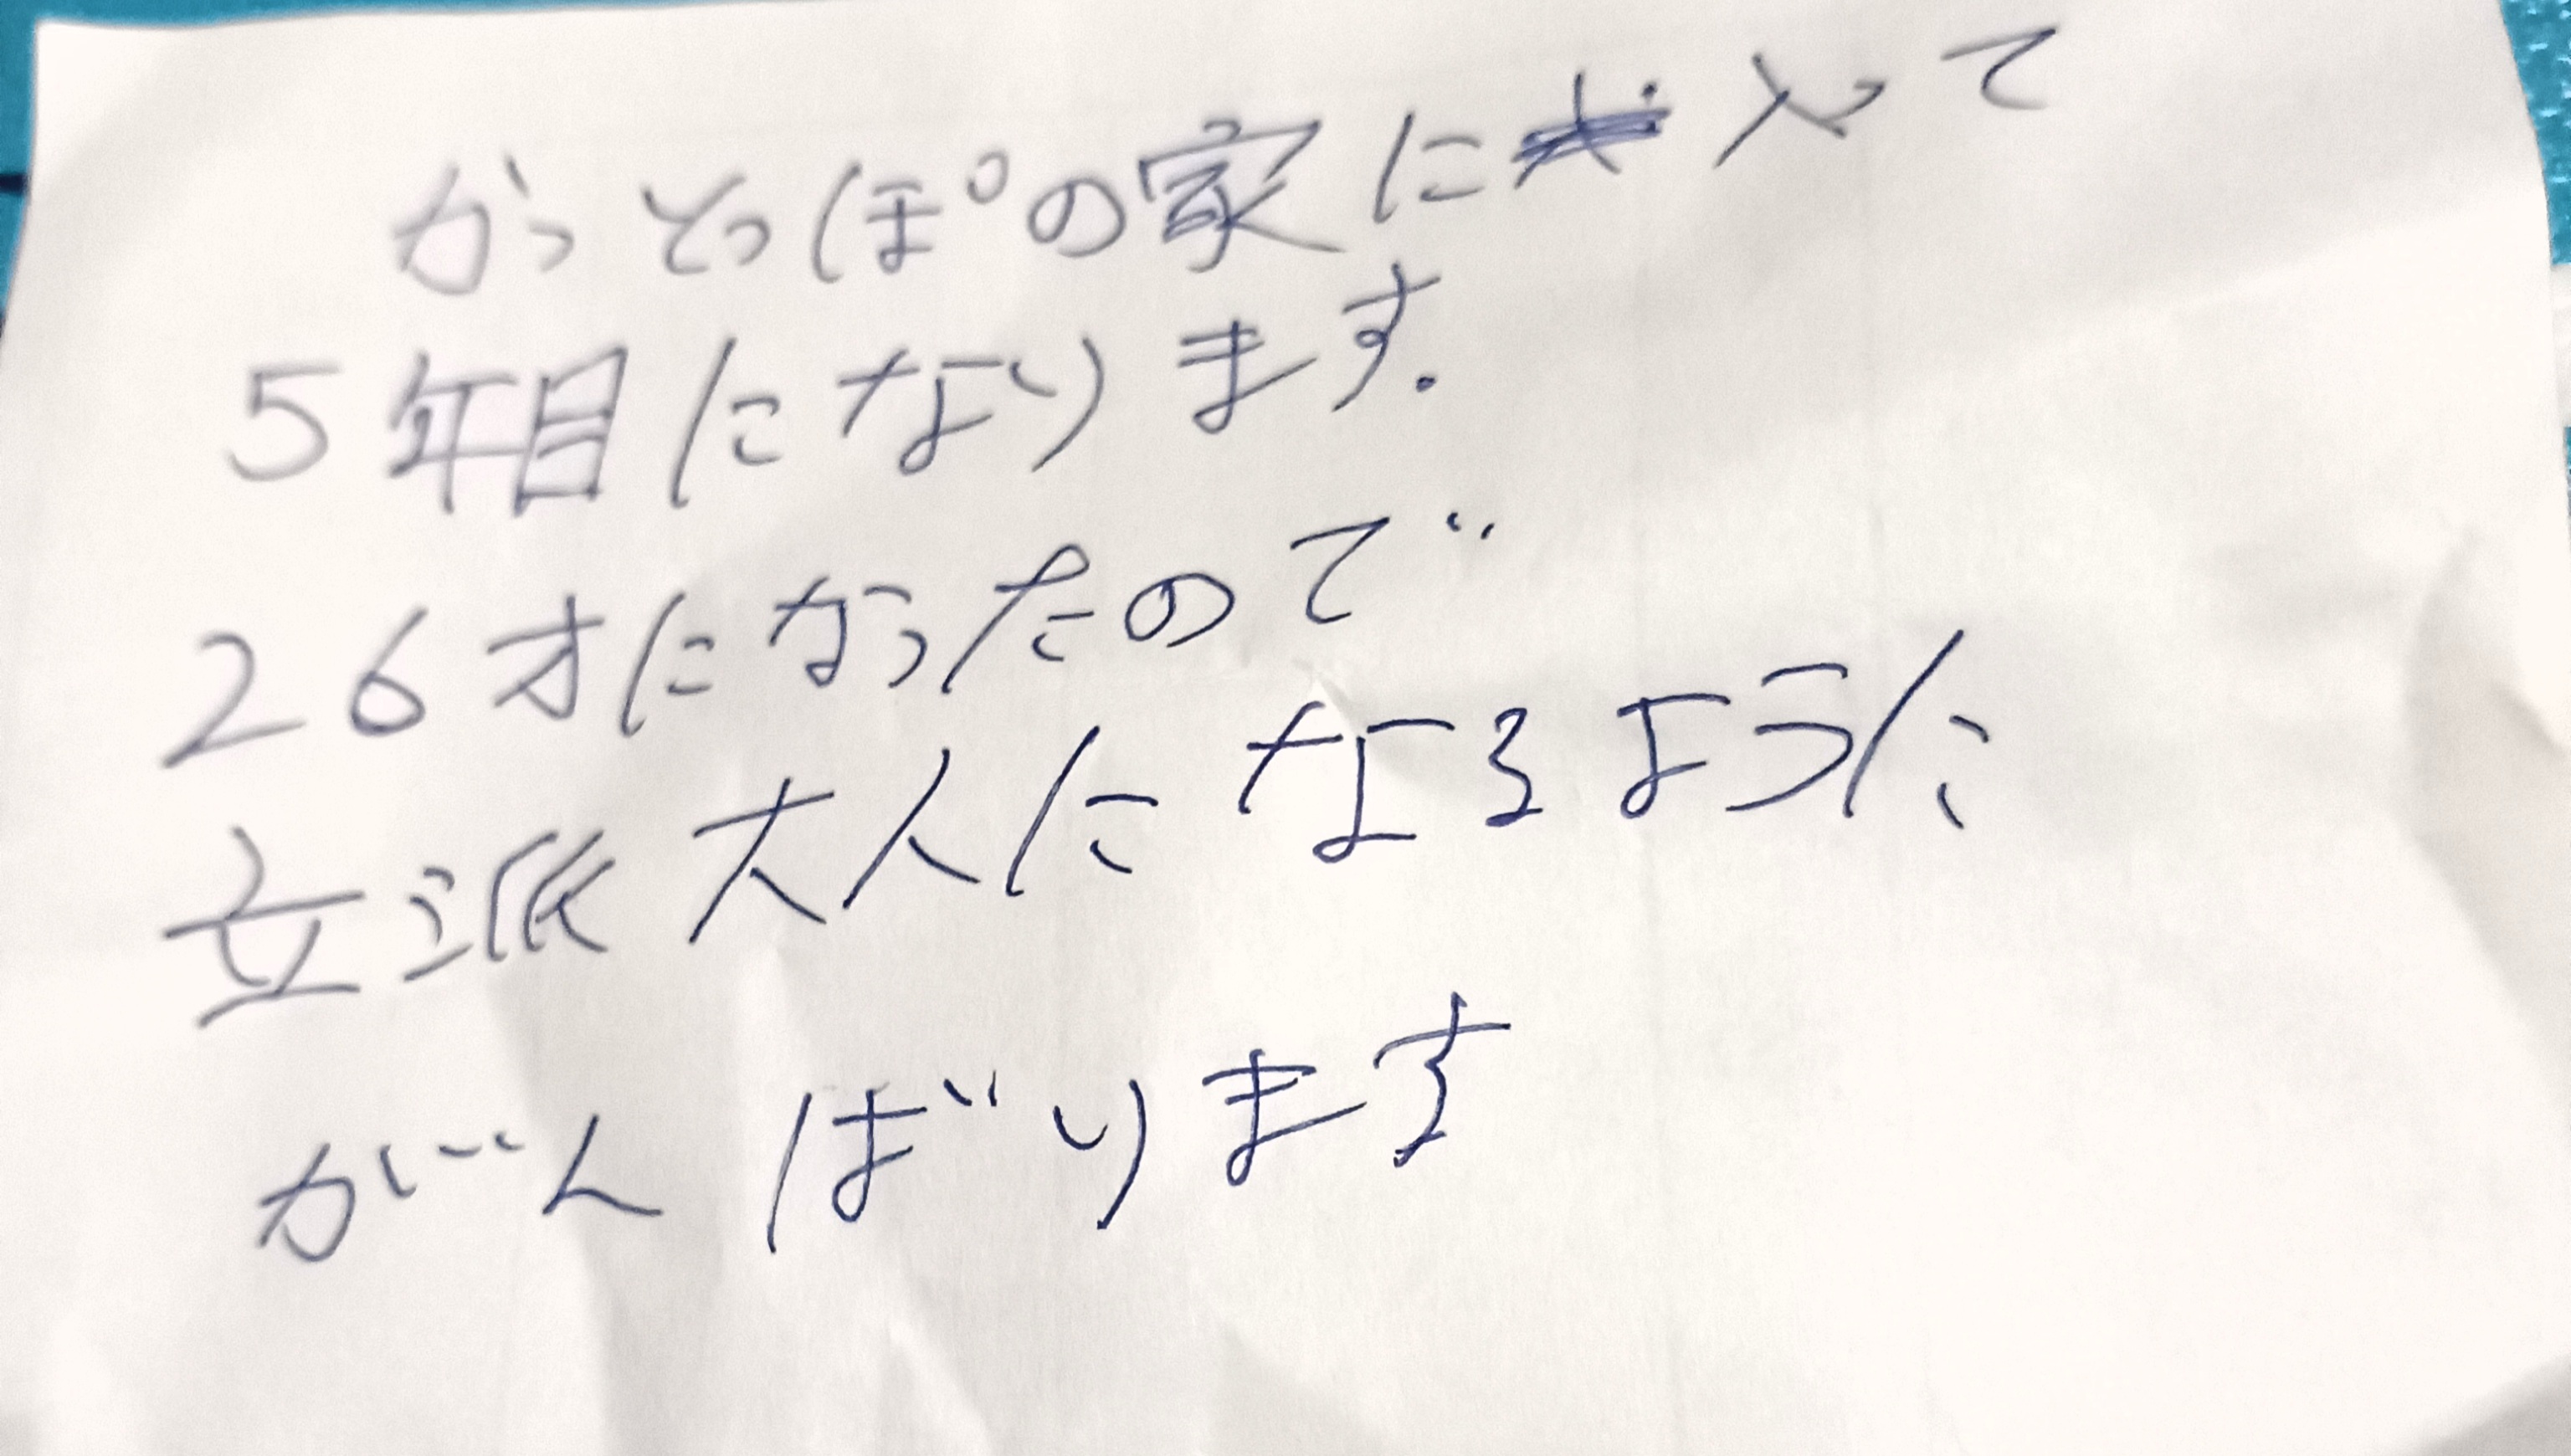 かっとっぽの家に入って
5年目になります.
26才になったので
立派大人になるように
がんばります